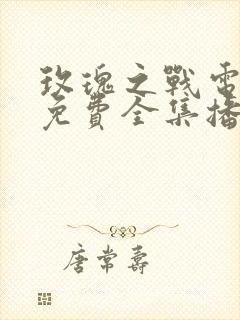 玫瑰之戰電
免費全集播
唐常壽